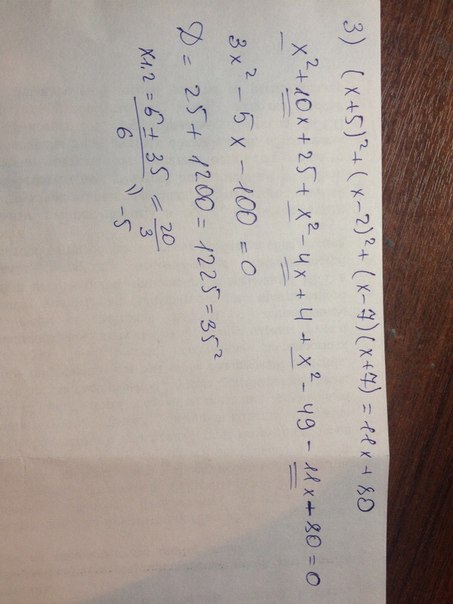 3) (x+5)²+(x-2)²+(x-7)(x+7)=11x+80
x²+10x+25+x²-4x+4+x²-49-11x-80=0
3x²-5x-100=0
D = 25+1200=1225=35²
x1,2 = 5±35/6 = 20/3; -5